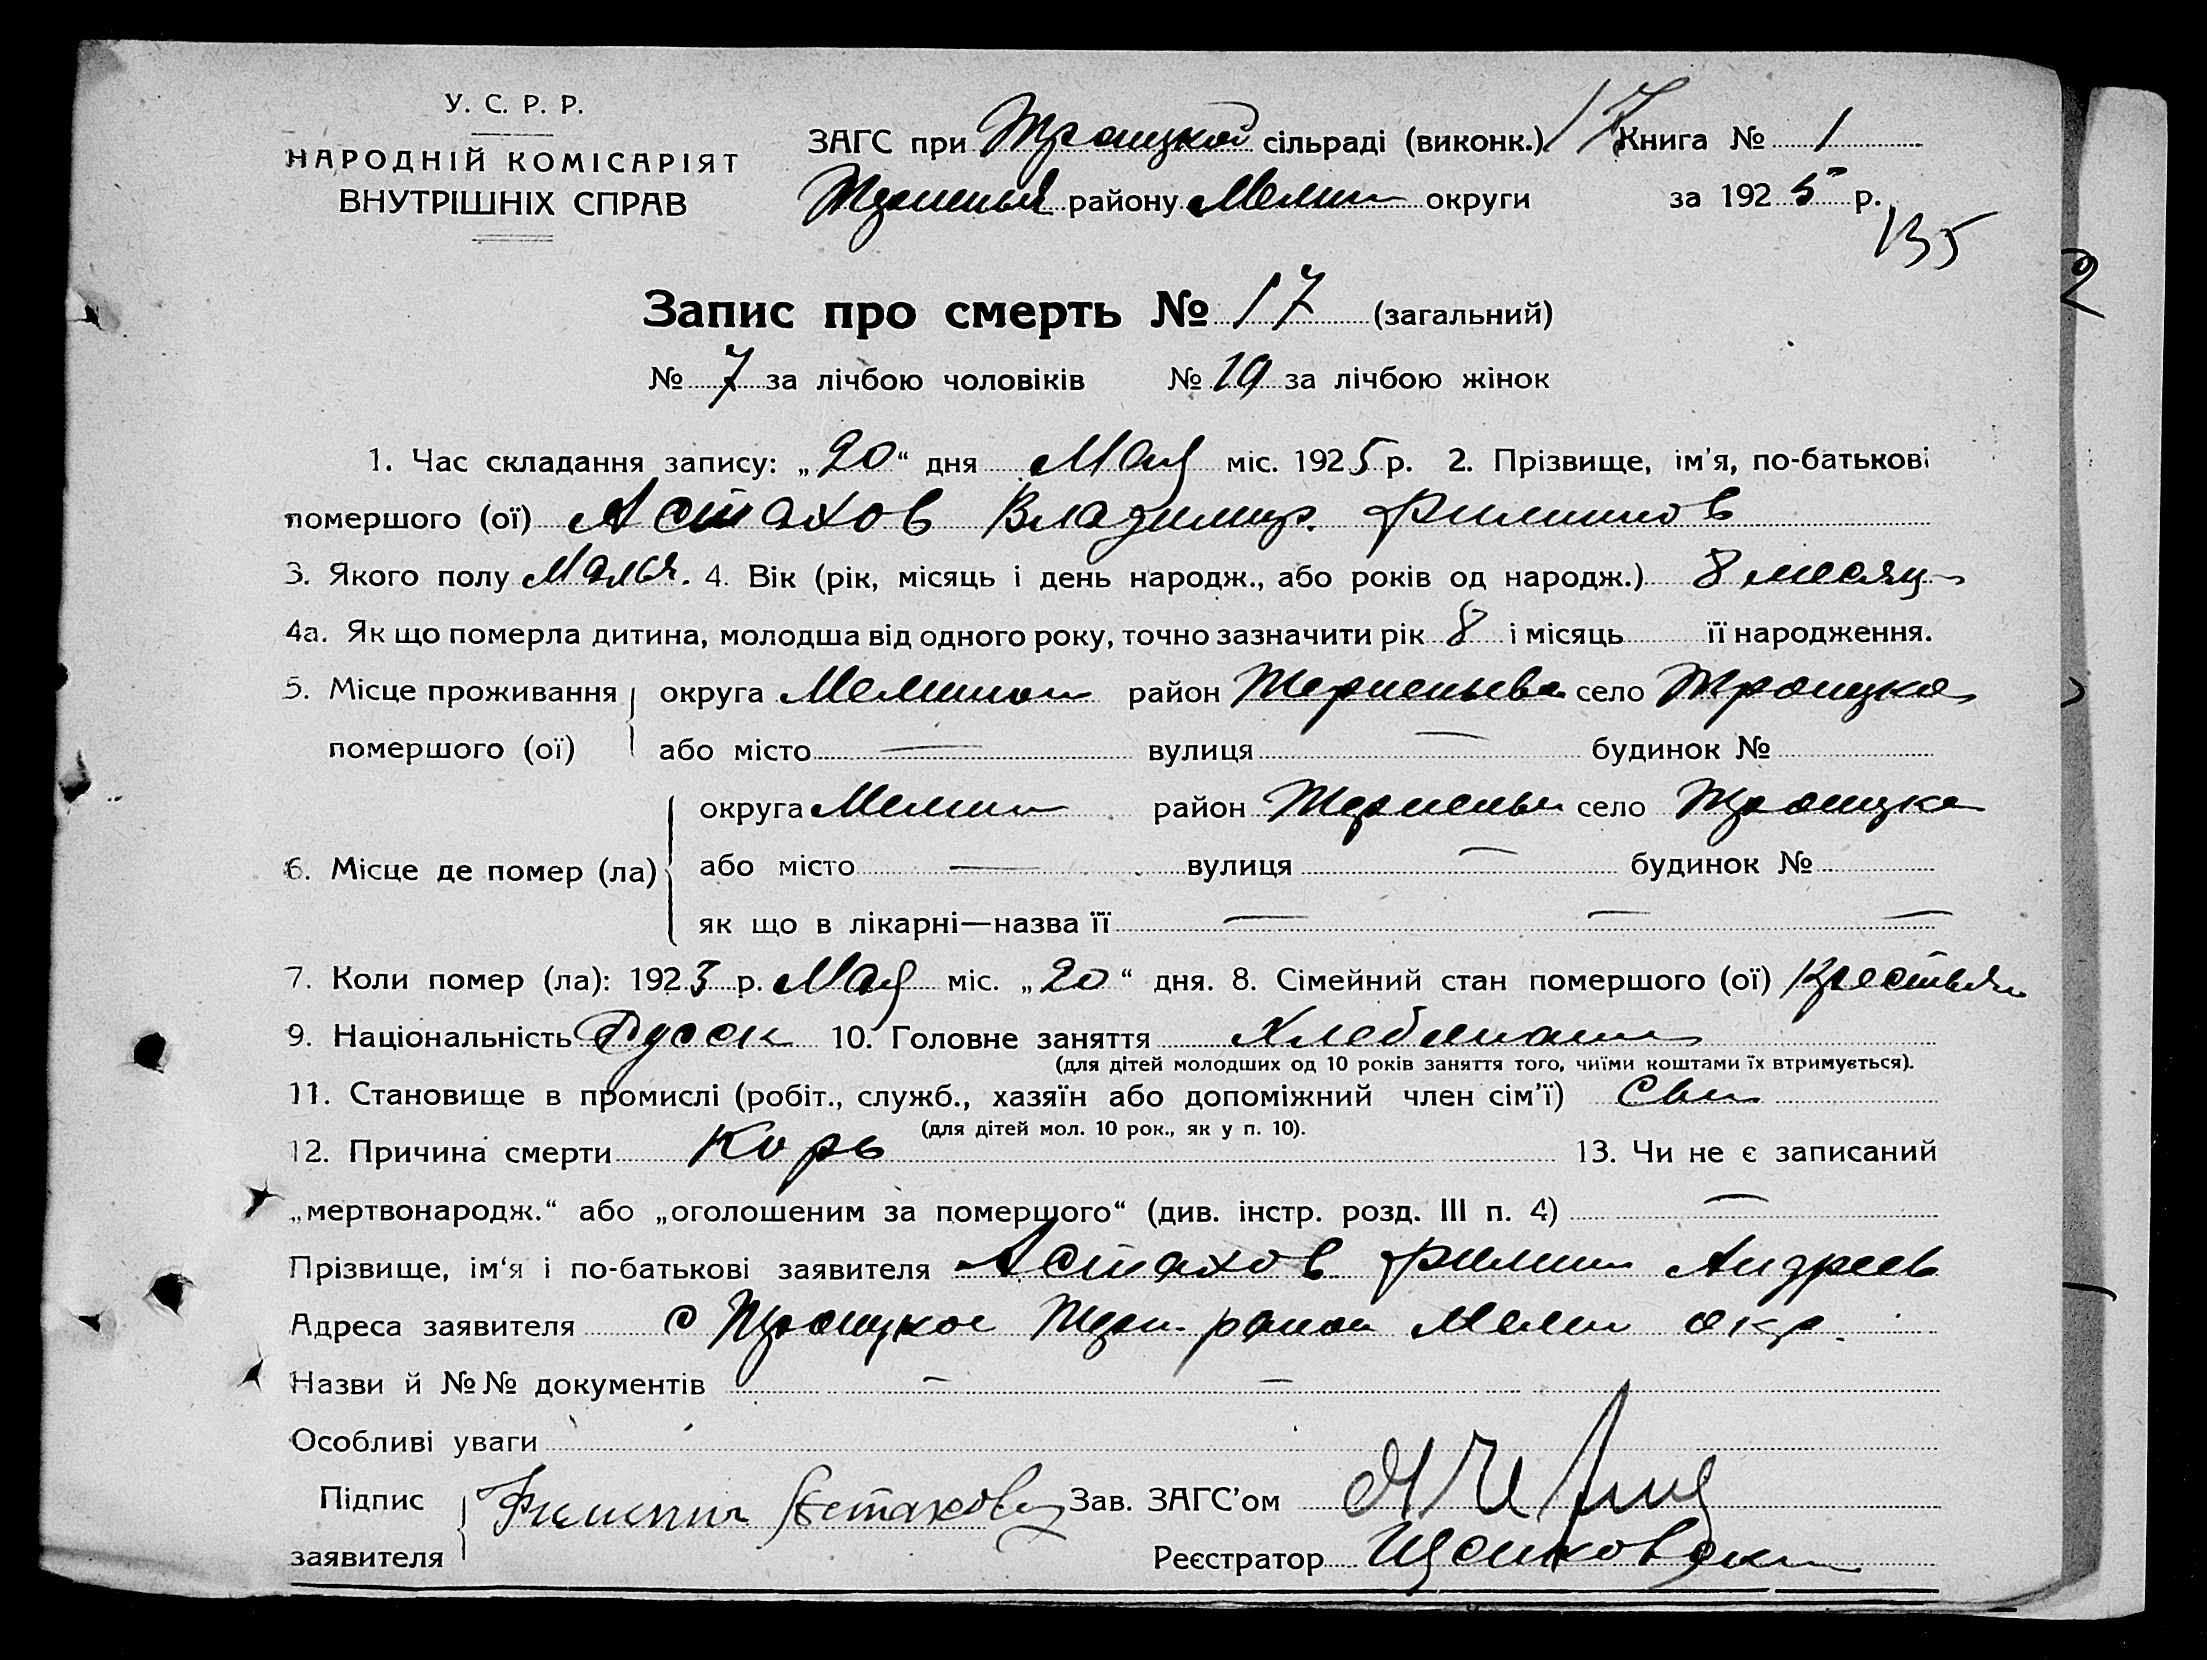 У. С. Р. Р.
НАРОДНІЙ КОМІСАРІЯТ
ВНУТРІШНІХ СПРАВ
ЗАГС при Троицкой сільраді (виконк.) 17 Книга № 1
району Мелит округи за 1925 р.
135
2
Запис про смерть № 17 (загальний)
№ 7 за лічбою чоловіків № 19 за лічбою жінок
1. Час складання запису: „20“ дня Мая міс. 1925 р. 2. Прізвище, ім'я, по-батькові
помершого (ої) Астахов Владимир Филипов
3. Якого полу 4. Вік (рік, місяць і день народж., або років од народж.) 8 месяц
4а. Як що померла дитина, молодша від одного року, точно зазначити рік 8 і місяць її народження.
5. Місце проживання округа район село Троицкое
помершого (ої) або місто — вулиця — будинок №
округа район село Троицкое
6. Місце де помер (ла) або місто — вулиця — будинок №
як що в лікарні—назва її — — —
7. Коли помер (ла): 1925 р. Мая міс. „20“ дня. 8. Сімейний стан помершого (ої) Крестьян
9. Національність Русск 10. Головне заняття
(для дітей молодших од 10 років заняття того, чиїми коштами їх втримується).
11. Становище в промислі (робіт., служб., хазяїн або допоміжний член сім'ї)
(для дітей мол. 10 рок., як у п. 10).
12. Причина смерти Корь 13. Чи не є записаний
„мертвонародж.“ або „оголошеним за помершого“ (див. інстр. розд. III п. 4) —
Прізвище, ім'я і по-батькові заявителя Астахов Филип Андреев
Адреса заявителя с Троицкое район Мелит окр.
Назви й №№ документів — —
Особливі уваги
Підпис Филипп Астахов Зав. ЗАГС'ом
заявителя Реєстратор